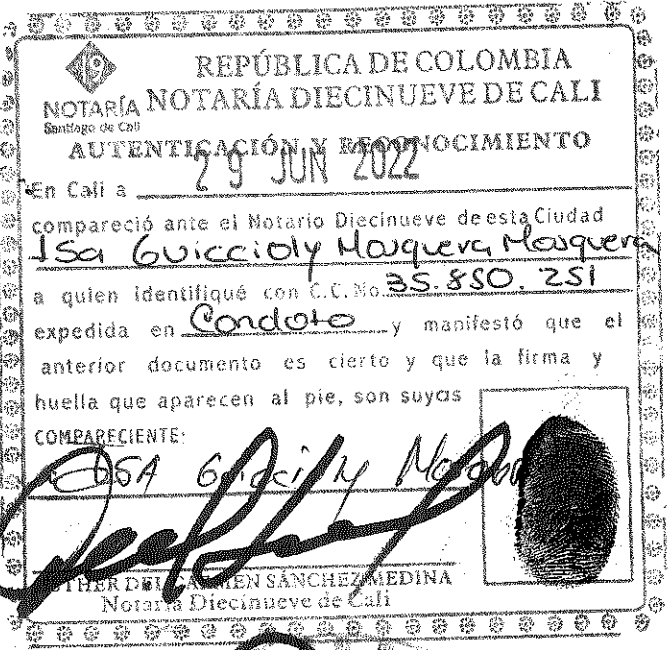 19
REPÚBLICA DE COLOMBIA
NOTARÍA
Santiago de Cali
NOTARÍA DIECINUEVE DE CALI
AUTENTICACIÓN Y RECONOCIMIENTO
En Cali a 29 JUN 2022
compareció ante el Notario Diecinueve de esta Ciudad
Isa Guiccioly Mosquera Mosquera
a quien identifiqué con C.C.No. 35.850.251
expedida en Condoto y manifestó que el
anterior documento es cierto y que la firma y
huella que aparecen al pie, son suyas
COMPARECIENTE:
DEL CARMEN SÁNCHEZ MEDINA
Notaria Diecinueve de Cali